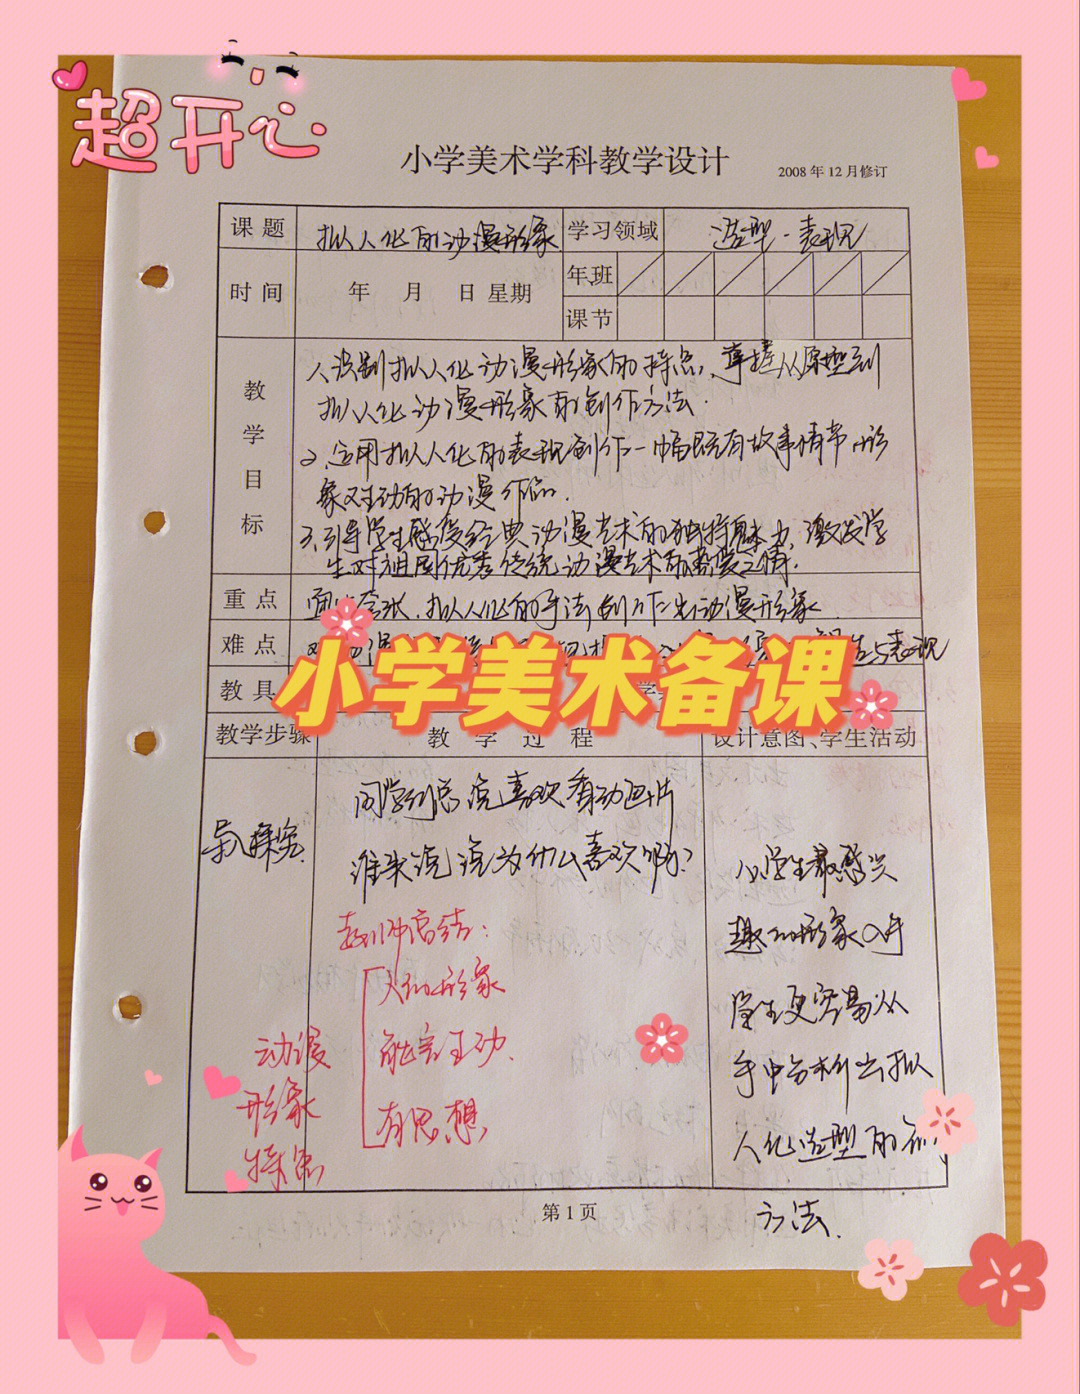 超开心
小学美术学科教学设计
2008年12月修订
课题 拟人化的动漫形象 学习领域 造型·表现
时间 年 月 日 星期 年班
课节
教学目标
1、识别拟人化动漫形象的特点,掌握从原型到
拟人化动漫形象的创作方法.
2、运用拟人化的表现创作一幅既有故事情节,形
象又生动的动漫作品.
3、引导学生感受经典动漫艺术的独特魅力,激发学
生对祖国优秀传统动漫艺术的喜爱之情.
重点 拟人化的手法创作出动漫形象
难点 与表现
小学美术备课
教具
教学步骤 教学过程 设计意图、学生活动
导入探究
同学们总说喜欢看动画片
谁来说说为什么喜欢啊?
教师总结:
人的形象
能言生动.
有思想
动漫
形象
特点
以学生最感兴
趣的形象入手
学生更容易从
手中分析出拟
人化造型的
方法.
第1页